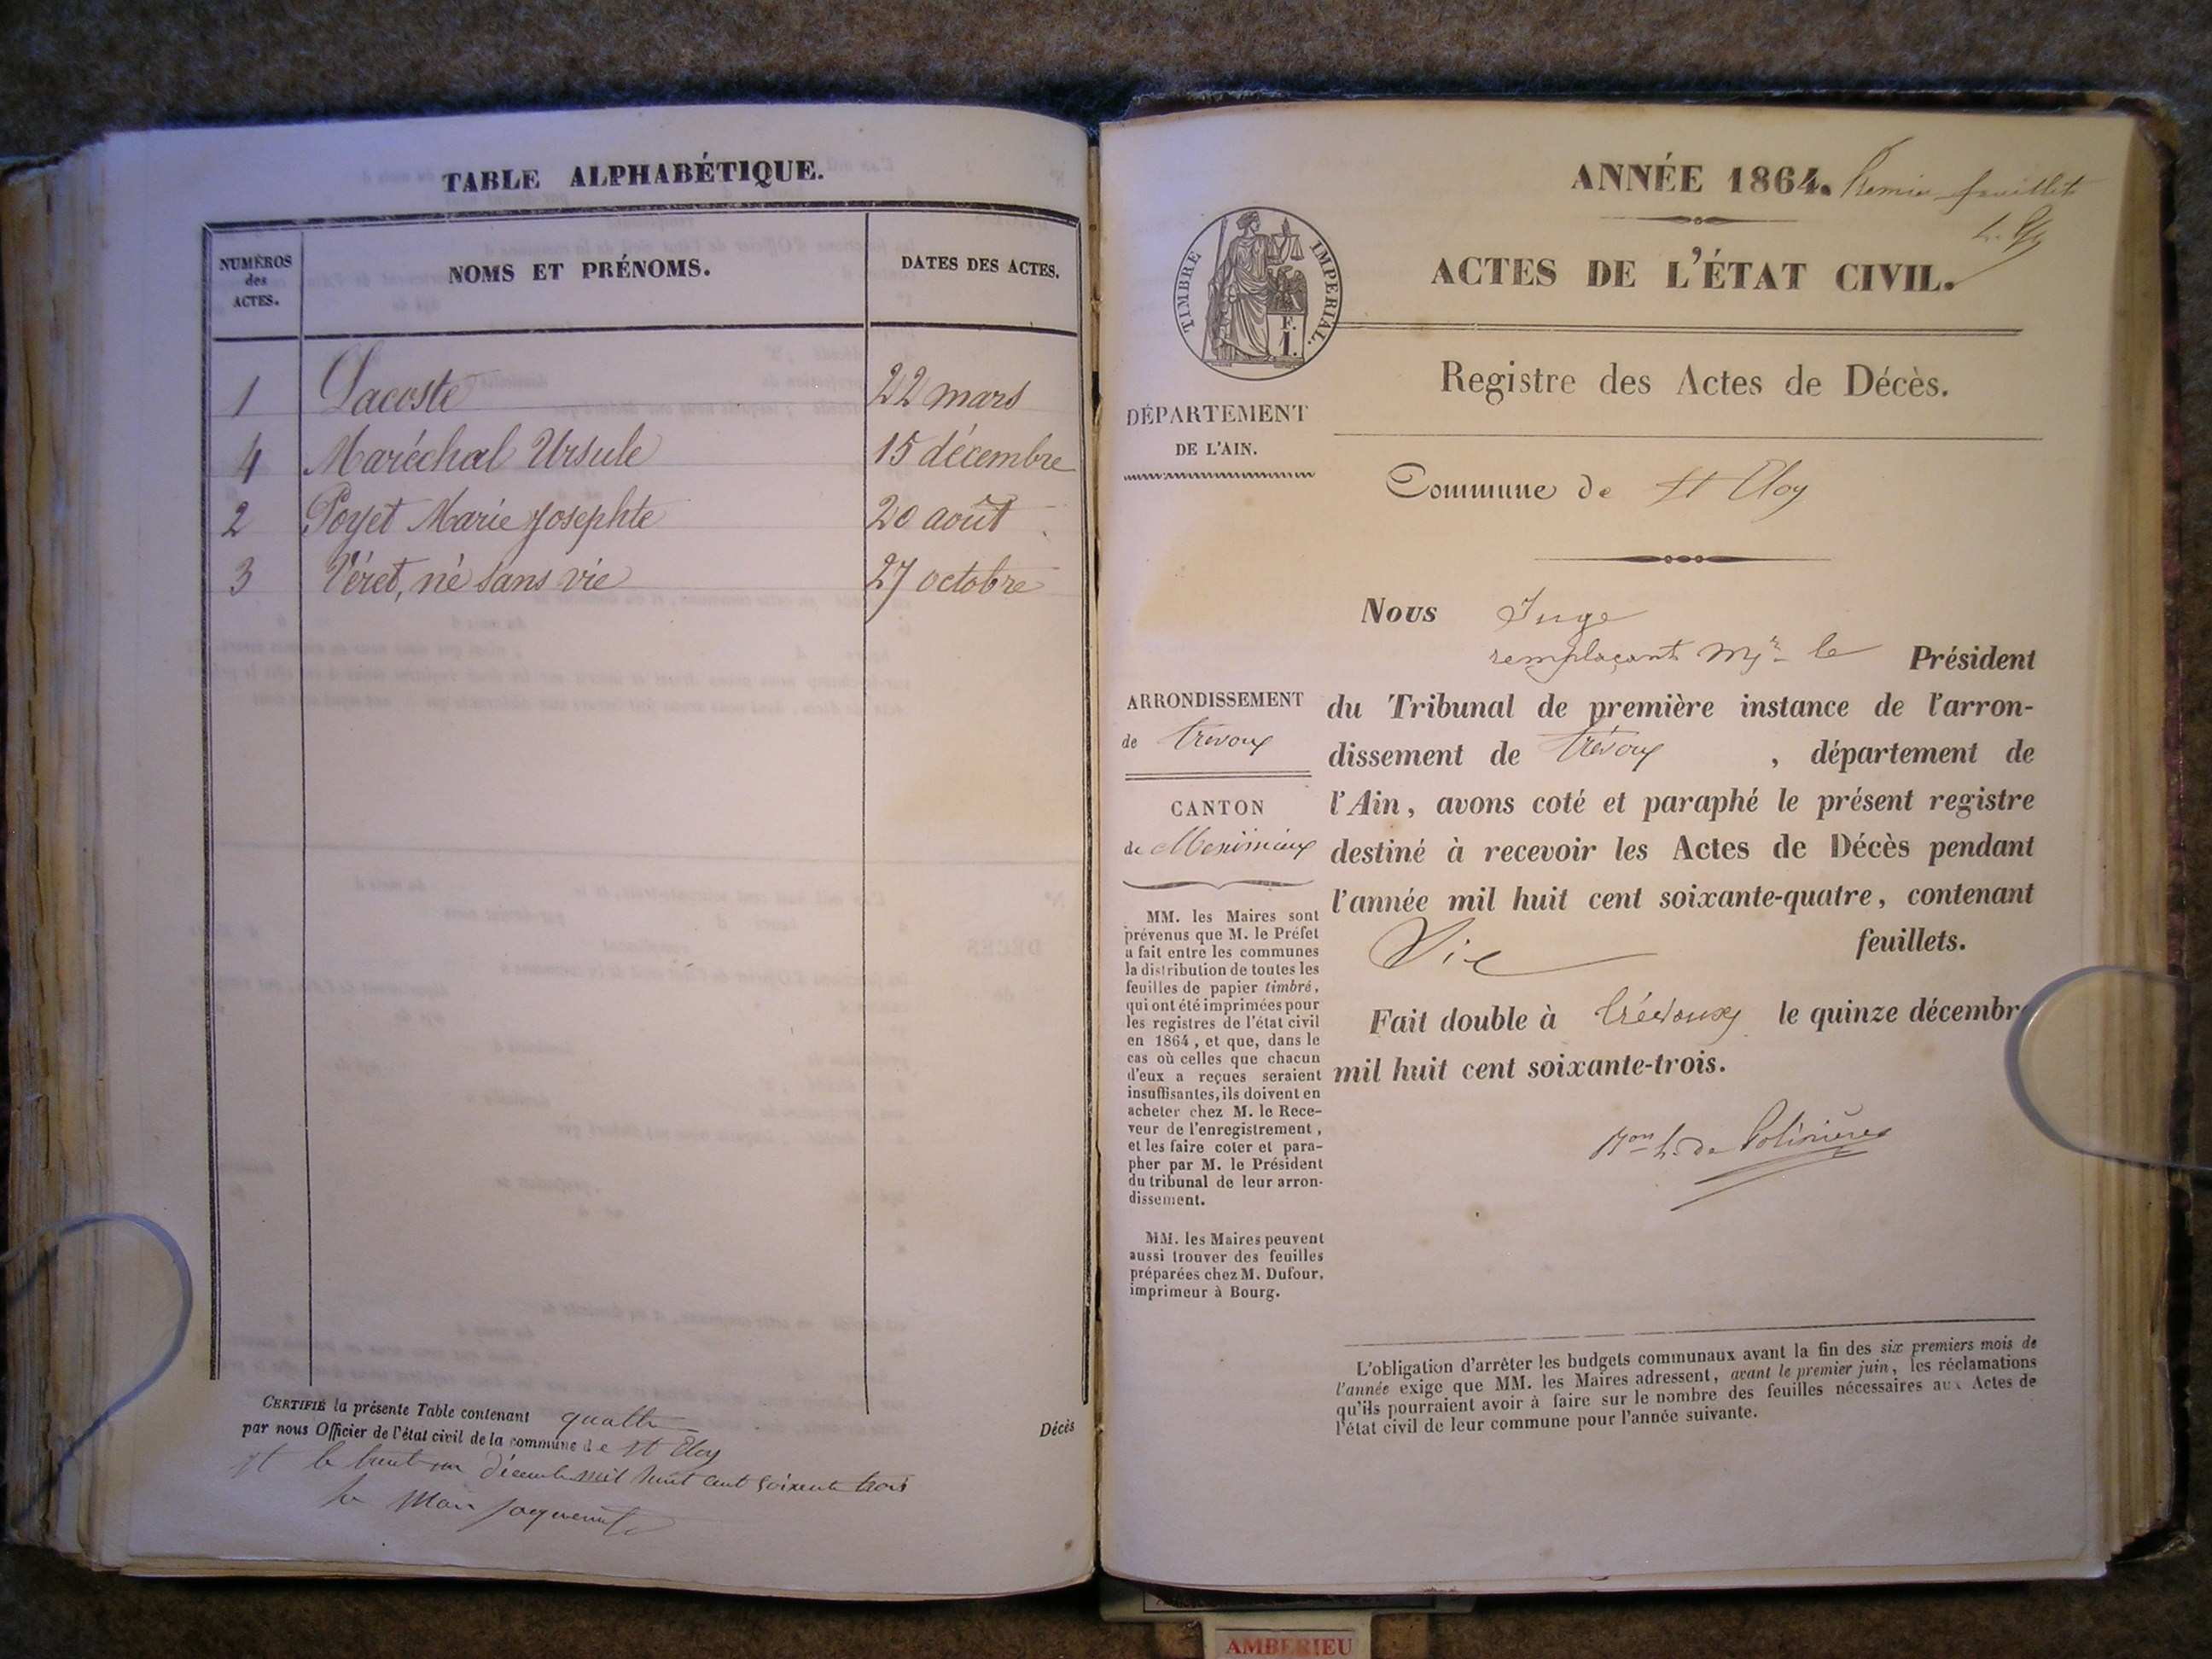 TABLE ALPHABÉTIQUE.
NUMÉROS
des
ACTES.
NOMS ET PRÉNOMS.
DATES DES ACTES.
1 Lacoste 22 mars
4 Maréchal Ursule 15 décembre
2 Poyet Marie Josephte 20 août
3 Véret, né sans vie 27 octobre
CERTIFIÉ la présente Table contenant quatre
Décès
par nous Officier de l'état civil de la commune de St Eloy
le trente un décembre mil huit cent soixante trois
le Maire Jacquemet
ANNÉE 1864. Premier feuillet
ACTES DE L'ÉTAT CIVIL.
TIMBRE IMPERIAL.
F.
1.
Registre des Actes de Décès.
DÉPARTEMENT
DE L'AIN.
Commune de St Eloy
Nous Juge
remplaçant Mr le Président
du Tribunal de première instance de l'arron-
dissement de Trévoux, département de
l'Ain, avons coté et paraphé le présent registre
destiné à recevoir les Actes de Décès pendant
l'année mil huit cent soixante-quatre, contenant
feuillets.
Fait double à Trévoux le quinze décembre
mil huit cent soixante-trois.
Bon L. de Polinière
ARRONDISSEMENT
de Trévoux
CANTON
de Meximieux
MM. les Maires sont
prévenus que M. le Préfet
a fait entre les communes
la distribution de toutes les
feuilles de papier timbré,
qui ont été imprimées pour
les registres de l'état civil
en 1864, et que, dans le
cas où celles que chacun
d'eux a reçues seraient
insuffisantes, ils doivent en
acheter chez M. le Rece-
veur de l'enregistrement,
et les faire coter et para-
pher par M. le Président
du tribunal de leur arron-
dissement.
MM. les Maires peuvent
aussi trouver des feuilles
préparées chez M. Dufour,
imprimeur à Bourg.
L'obligation d'arrêter les budgets communaux avant la fin des six premiers mois de
l'année exige que MM. les Maires adressent, avant le premier juin, les réclamations
qu'ils pourraient avoir à faire sur le nombre des feuilles nécessaires aux Actes de
l'état civil de leur commune pour l'année suivante.
AMBERIEU